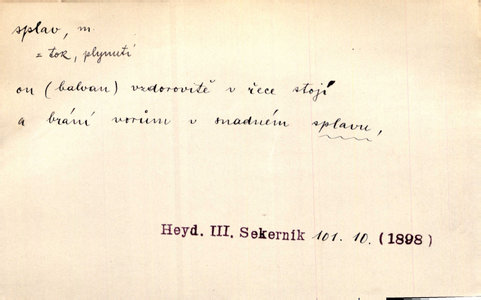 splav, m.
= tok, plynutí
on (balvan) vzdorovitě v řece stojí
a brání vorům v snadném splavu,
Heyd. III. Sekerník 101. 10. (1898)